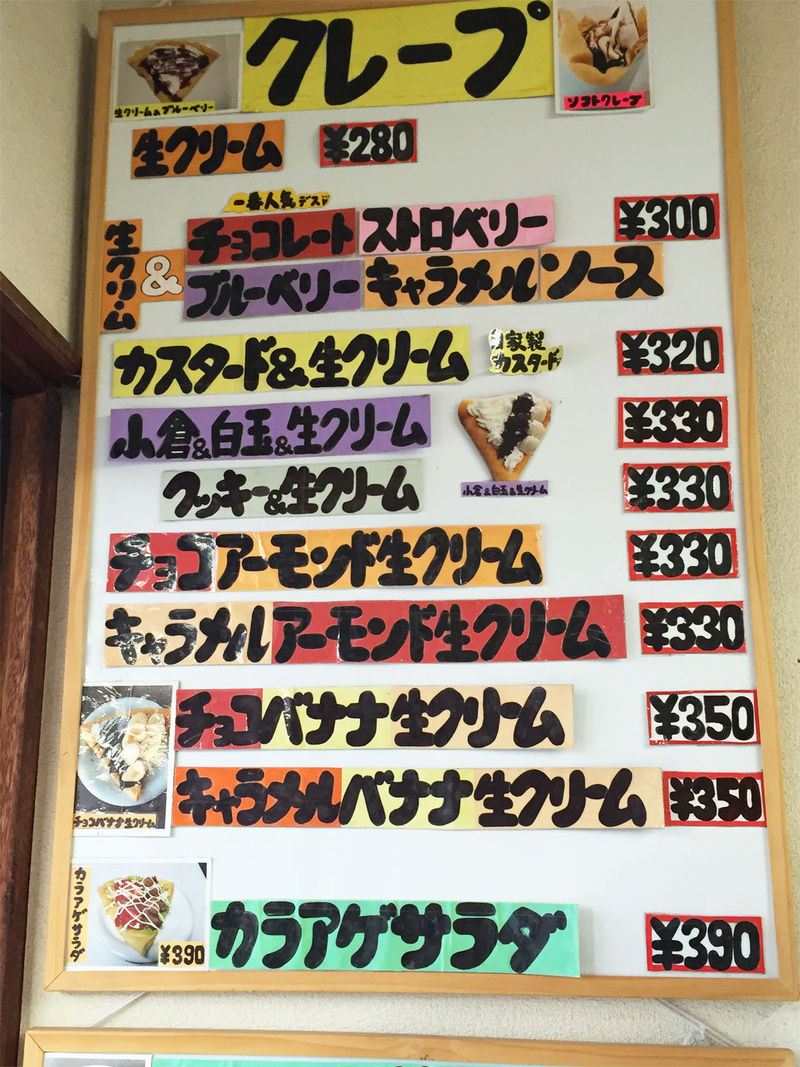 クレープ
生クリーム&ブルーベリー
ソフトクレープ
生クリーム ¥280
一番人気デス
生クリーム & チョコレート ストロベリー ¥300
ブルーベリー キャラメルソース
カスタード&生クリーム 自家製 カスタード ¥320
小倉&白玉&生クリーム ¥330
小倉&白玉&生クリーム
クッキー&生クリーム ¥330
チョコアーモンド生クリーム ¥330
キャラメルアーモンド生クリーム ¥330
チョコバナナ生クリーム ¥350
チョコバナナ生クリーム
キャラメルバナナ生クリーム ¥350
カラアゲサラダ ¥390
カラアゲサラダ ¥390